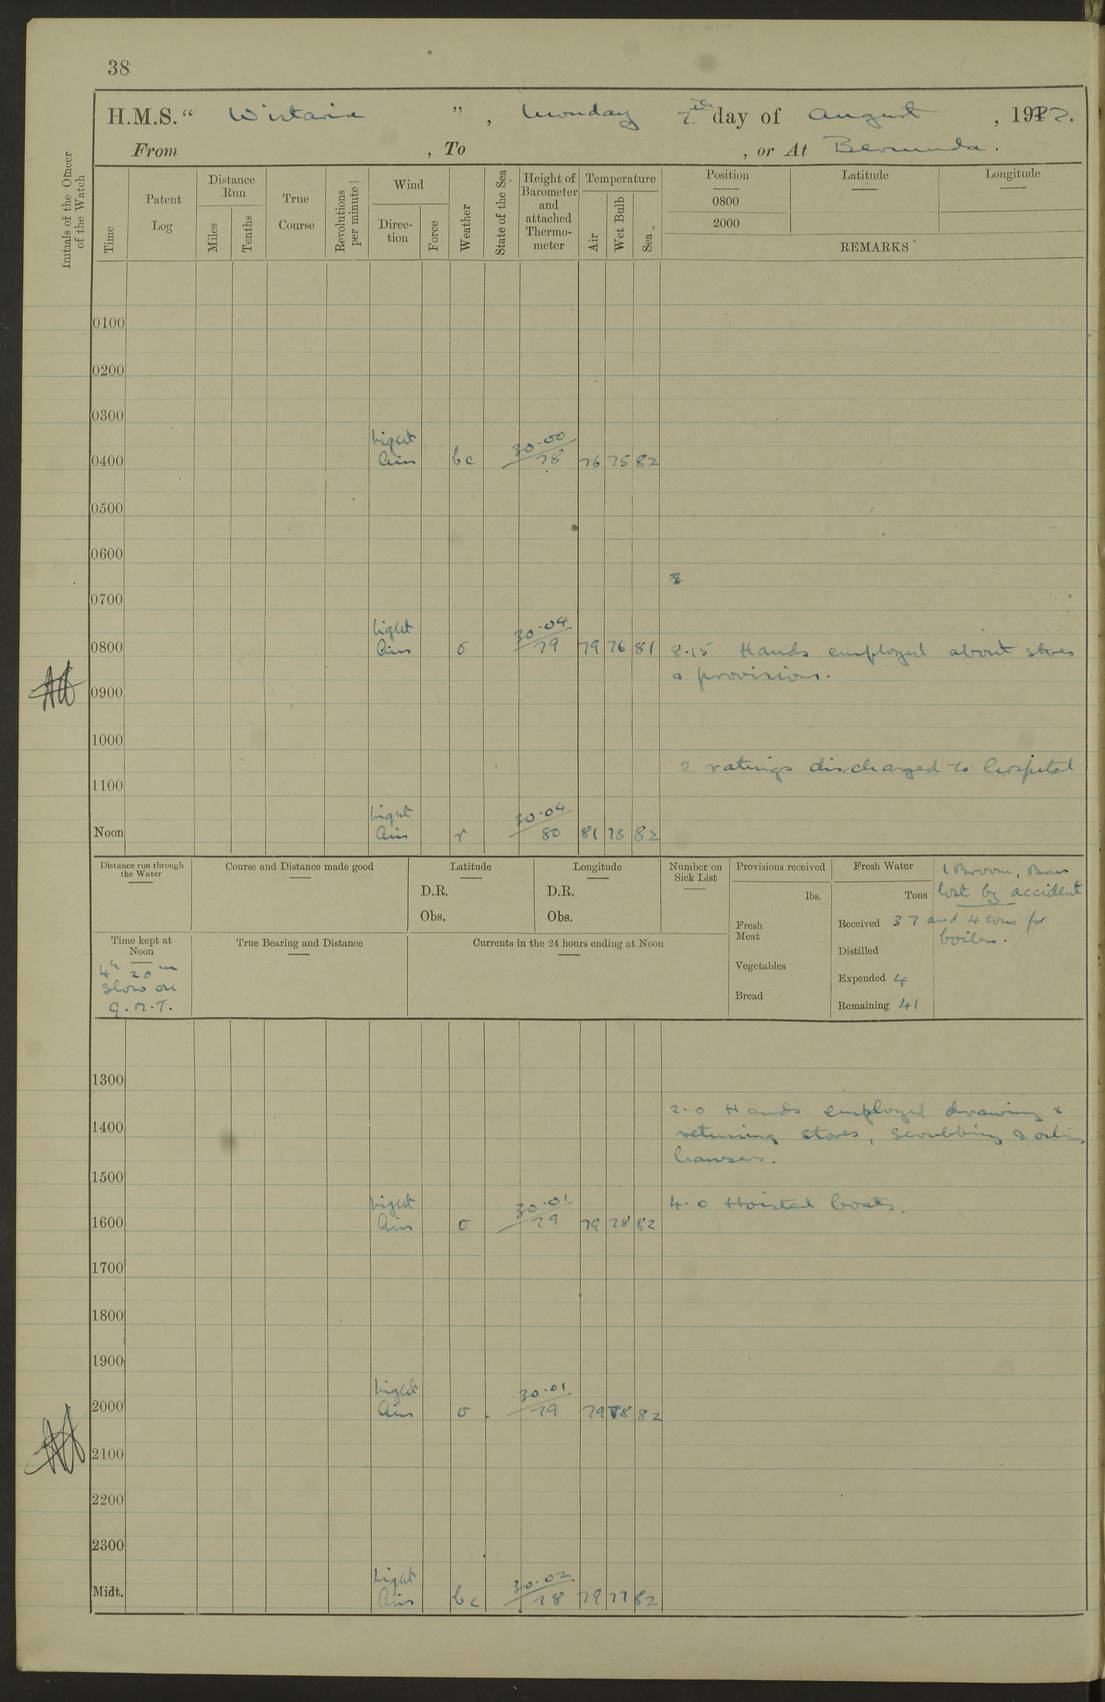 38
H.M.S. " Wistaria ", Monday 7th day of August, 1922.
From , To , or At Bermuda.
Initials of the Officer of the Watch
Time
Patent Log
Distance Run
Miles
Tenths
True Course
Revolutions per minute
Wind
Direc-tion
Force
Weather
State of the Sea
Height of Barometer and attached Thermo-meter
Temperature
Air
Wet Bulb
Sea
Position
0800
2000
Latitude
Longitude
REMARKS
0100
0200
0300
Light
0400 Airs bc 30.00/78 76 75 82
0500
0600
0700
Light
0800 Airs o 30.04/79 79 76 81 8.15 Hands employed about stores
& provisions.
0900
1000
2 ratings discharged to hospital
1100
Light
Noon Airs r 30.04/80 81 78 82
Distance run through the Water
Course and Distance made good
Latitude
D.R.
Obs.
Longitude
D.R.
Obs.
Number on Sick List
Provisions received
lbs.
Fresh Meat
Vegetables
Bread
Fresh Water
Tons
Received 37 and 4 tons for
boilers.
Distilled
Expended 4
Remaining 41
1 Broom, Bass
lost by accident
Time kept at Noon
4h 20m
slow on
G.M.T.
True Bearing and Distance
Currents in the 24 hours ending at Noon
1300
2.0 Hands employed drawing &
1400 returning stores, scrubbing & oiling
hawsers.
1500
Light 4.0 Hoisted boats.
1600 Airs o 30.01/79 79 78 82
1700
1800
1900
Light
2000 Airs o 30.01/79 79 78 82
2100
2200
2300
Light
Midt. Airs bc 30.02/78 79 77 82